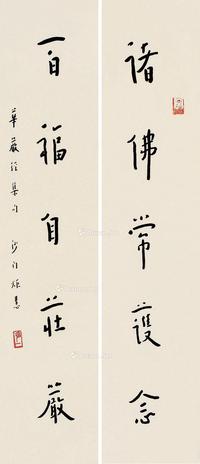 諸佛常護念
百福自莊嚴
華嚴經集句 沙門炬慧